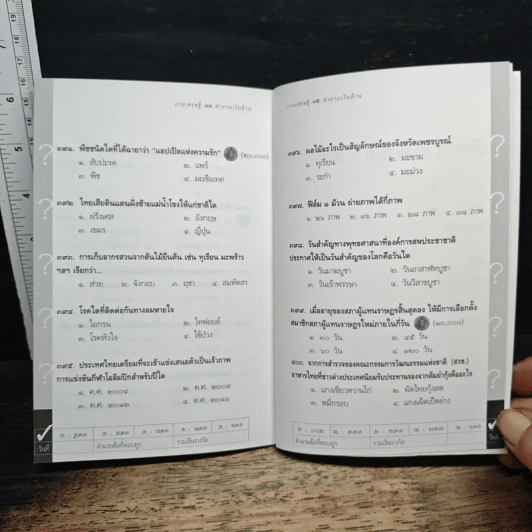 เกมเศรษฐี ๑๕ คำถามเงินล้าน
๓๙๑. พืชชนิดใดที่ได้ฉายาว่า "แอปเปิลแห่งความรัก" (๒๐,๐๐๐)
๑. สับปะรด ๒. แพร์
๓. พีช ๔. มะเขือเทศ
๓๙๒. ไทยเสียดินแดนฝั่งซ้ายแม่น้ำโขงให้แก่ชาติใด
๑. ฝรั่งเศส ๒. อังกฤษ
๓. เขมร ๔. ญี่ปุ่น
๓๙๓. การเก็บอากรสวนจากต้นไม้ยืนต้น เช่น ทุเรียน มะพร้าว
ฯลฯ เรียกว่า...
๑. ส่วย ๒. จังกอบ ๓. ฤชา ๔. สมพัตสร
๓๙๔. โรคใดที่ติดต่อกันทางลมหายใจ
๑. ไอกรน ๒. ไทฟอยด์
๓. โรคหัวใจ ๔. ไข้ป่วง
๓๙๕. ประเทศไทยเตรียมที่จะเข้าแข่งเสนอตัวเป็นเจ้าภาพ
การแข่งขันกีฬาโอลิมปิกสำหรับปีใด
๑. ค.ศ. ๒๐๐๔ ๒. ค.ศ. ๒๐๐๘
๓. ค.ศ. ๒๐๑๒ ๔. ค.ศ. ๒๐๑๖
จำนวนข้อที่ตอบถูก รวมเงินรางวัล
วันที่
เกมเศรษฐี ๑๕ คำถามเงินล้าน
๓๙๖. ผลไม้อะไรเป็นสัญลักษณ์ของจังหวัดเพชรบูรณ์
๑. ทุเรียน ๒. มะขาม
๓. ระกำ ๔. มะม่วง
๓๙๗. ฟิล์ม ๑ ม้วน ถ่ายภาพได้กี่ภาพ
๑. ๒๖ ภาพ ๒. ๓๖ ภาพ ๓. ๒๘ ภาพ ๔. ๓๘ ภาพ
๓๙๘. วันสำคัญทางพุทธศาสนาที่องค์การสหประชาชาติ
ประกาศให้เป็นวันสำคัญของโลกคือวันใด
๑. วันมาฆบูชา ๒. วันอาสาฬหบูชา
๓. วันเข้าพรรษา ๔. วันวิสาขบูชา
๓๙๙. เมื่ออายุของสภาผู้แทนราษฎรสิ้นสุดลง ให้มีการเลือกตั้ง
สมาชิกสภาผู้แทนราษฎรใหม่ภายในกี่วัน (๑๐,๐๐๐)
๑. ๓๐ วัน ๒. ๔๕ วัน
๓. ๖๐ วัน ๔. ๑๒๐ วัน
๔๐๐. จากการสำรวจของคณะกรรมการวัฒนธรรมแห่งชาติ (สวช.)
อาหารไทยที่ชาวต่างประเทศนิยมรับประทานรองจากต้มยำกุ้งคืออะไร
๑. แกงเขียวหวานไก่ ๒. ผัดไทยกุ้งสด
๓. หมี่กรอบ ๔. แกงเผ็ดเป็ดย่าง
จำนวนข้อที่ตอบถูก รวมเงินรางวัล
วันที่